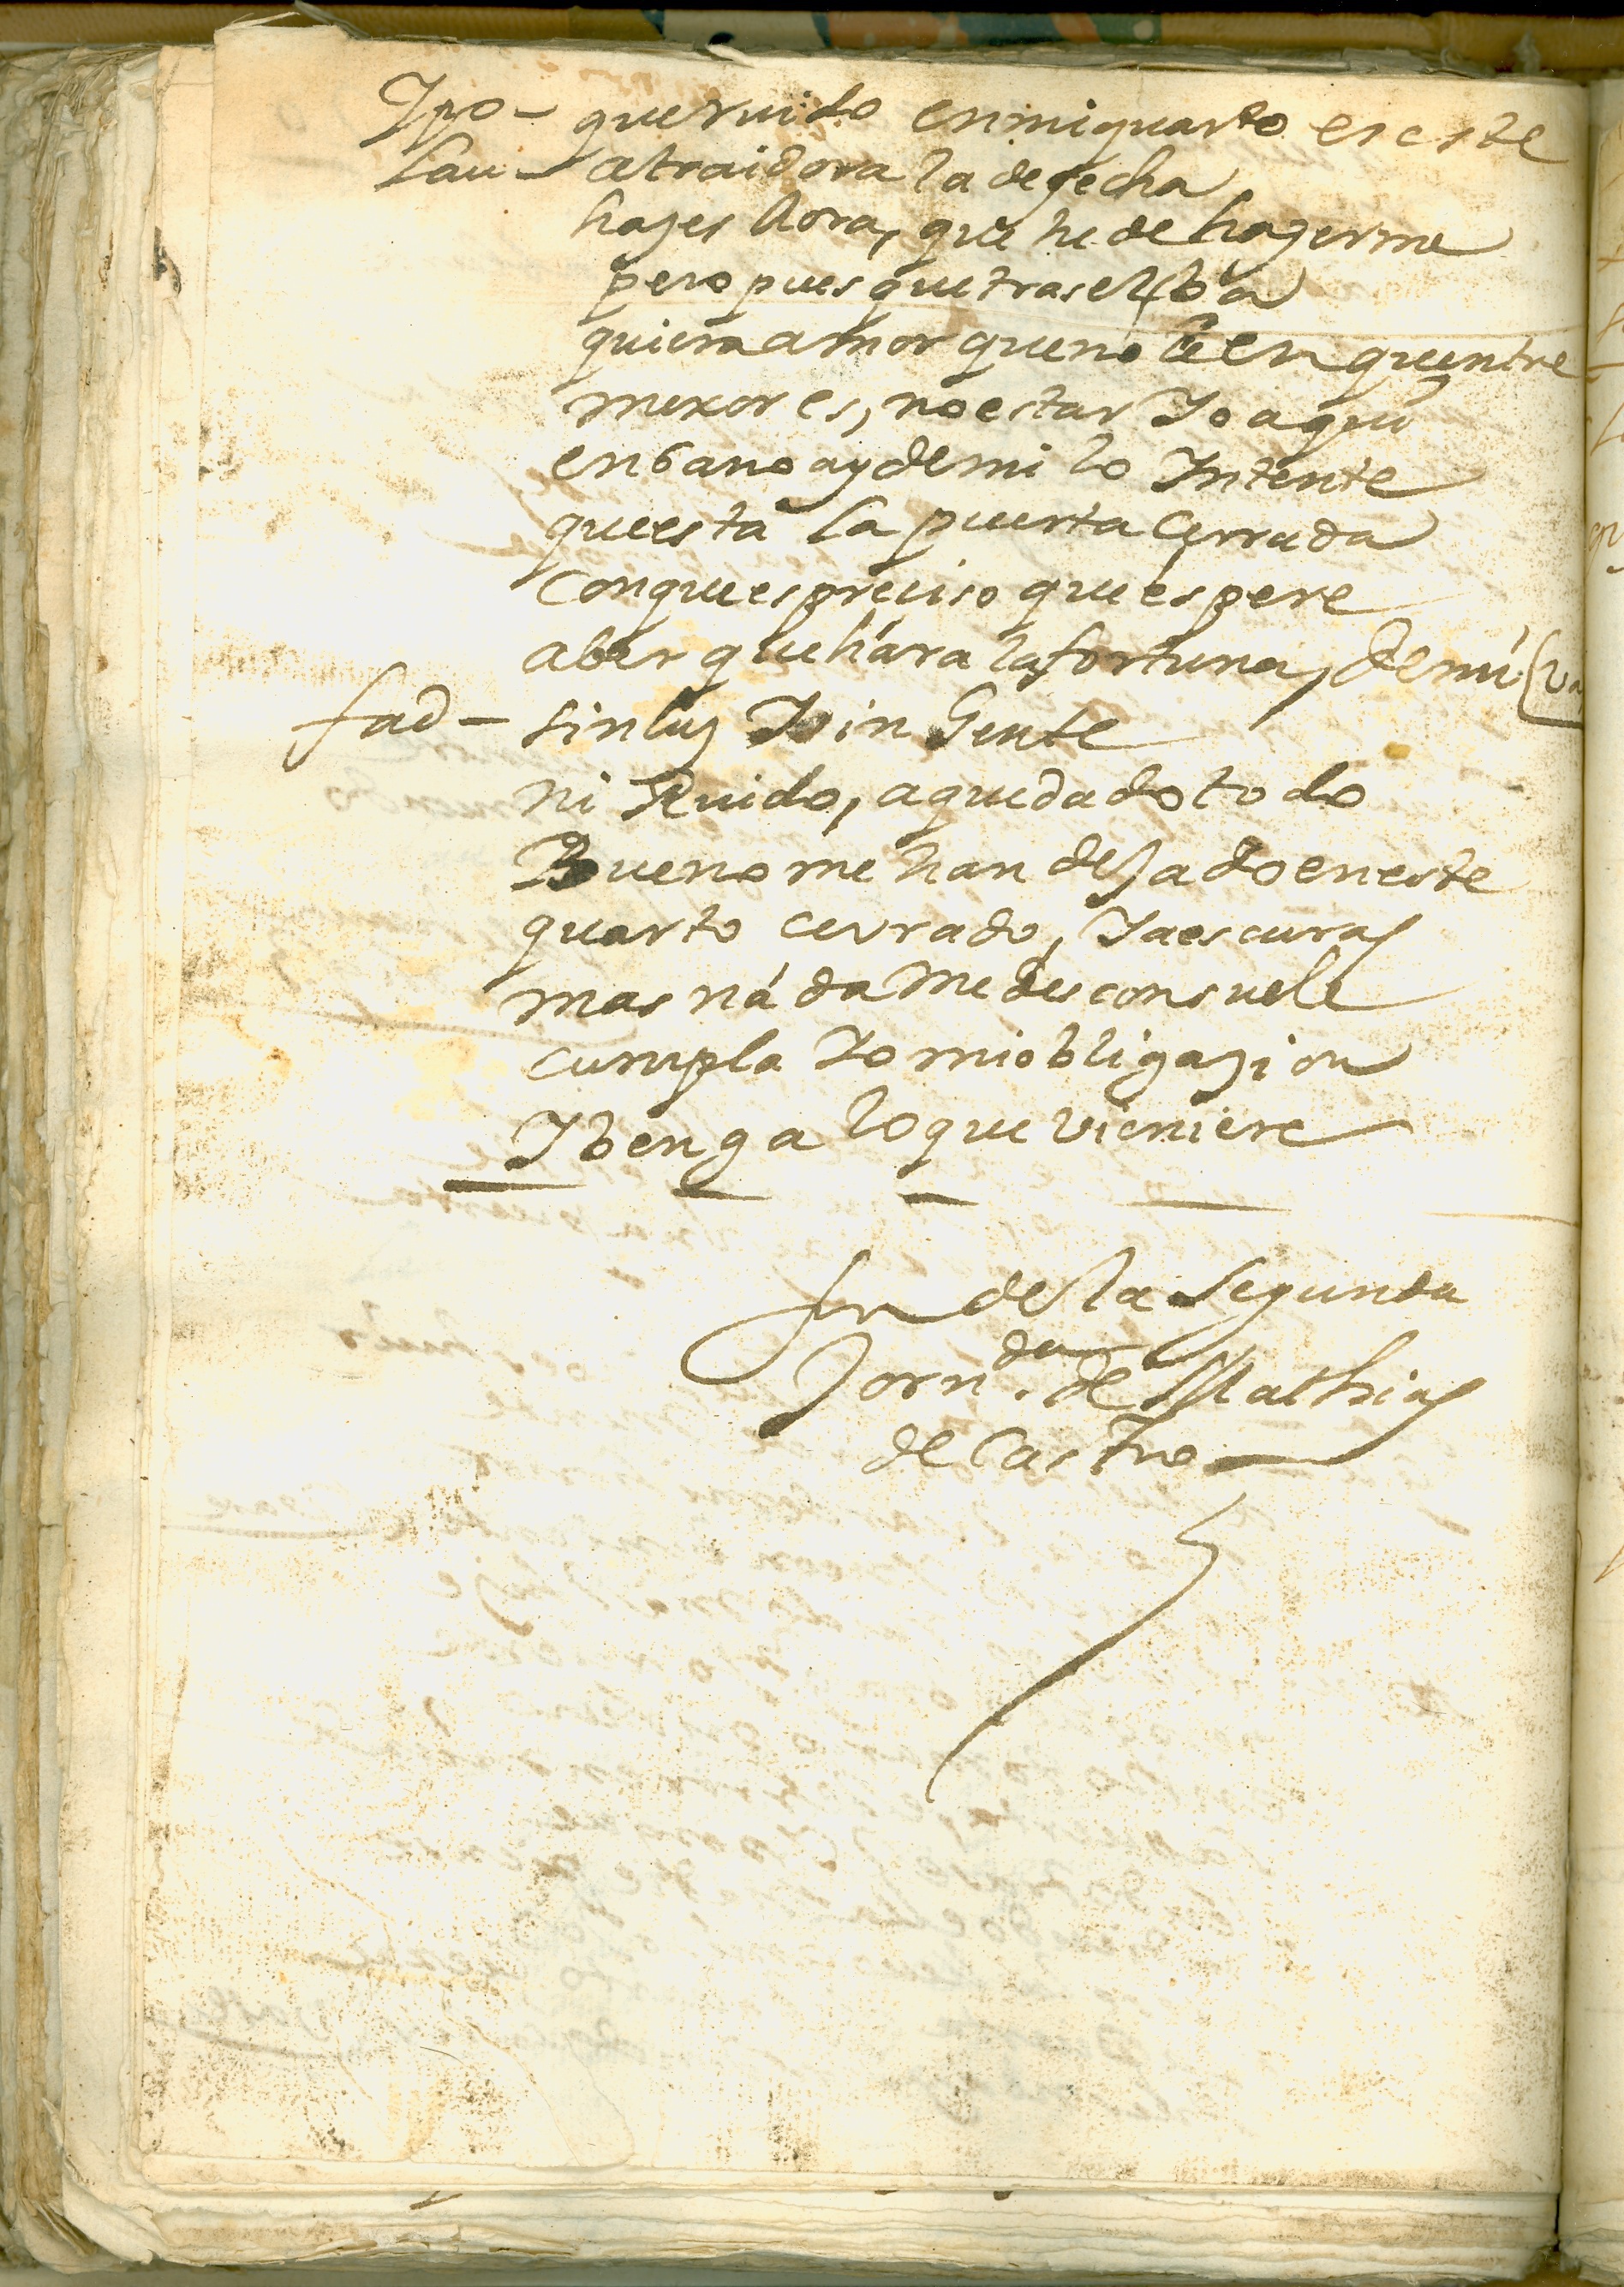 Ypo - que ruido en mi quarto es este
Lau - a traidora la desecha
hazes aora, que he de hazerme
pero pues que tras el ba
quiera amor que no le enquentre
mexor es, no estar Yo aqui
en bano ay de mi lo Yntente
que esta la puerta Cerrada
Con que es preciso que espere
a ber que hara la fortuna, de mi
fad - sin luz Y sin Gente
ni Ruido, a quedado todo
Bueno me han dejado en este
quarto cerrado, Y a escuras
mas náda me desconsuele
cumpla Yo mi obligazion
Y benga lo que vieniere
fin de la Segunda
Jorn.da de Mathias
de Castro